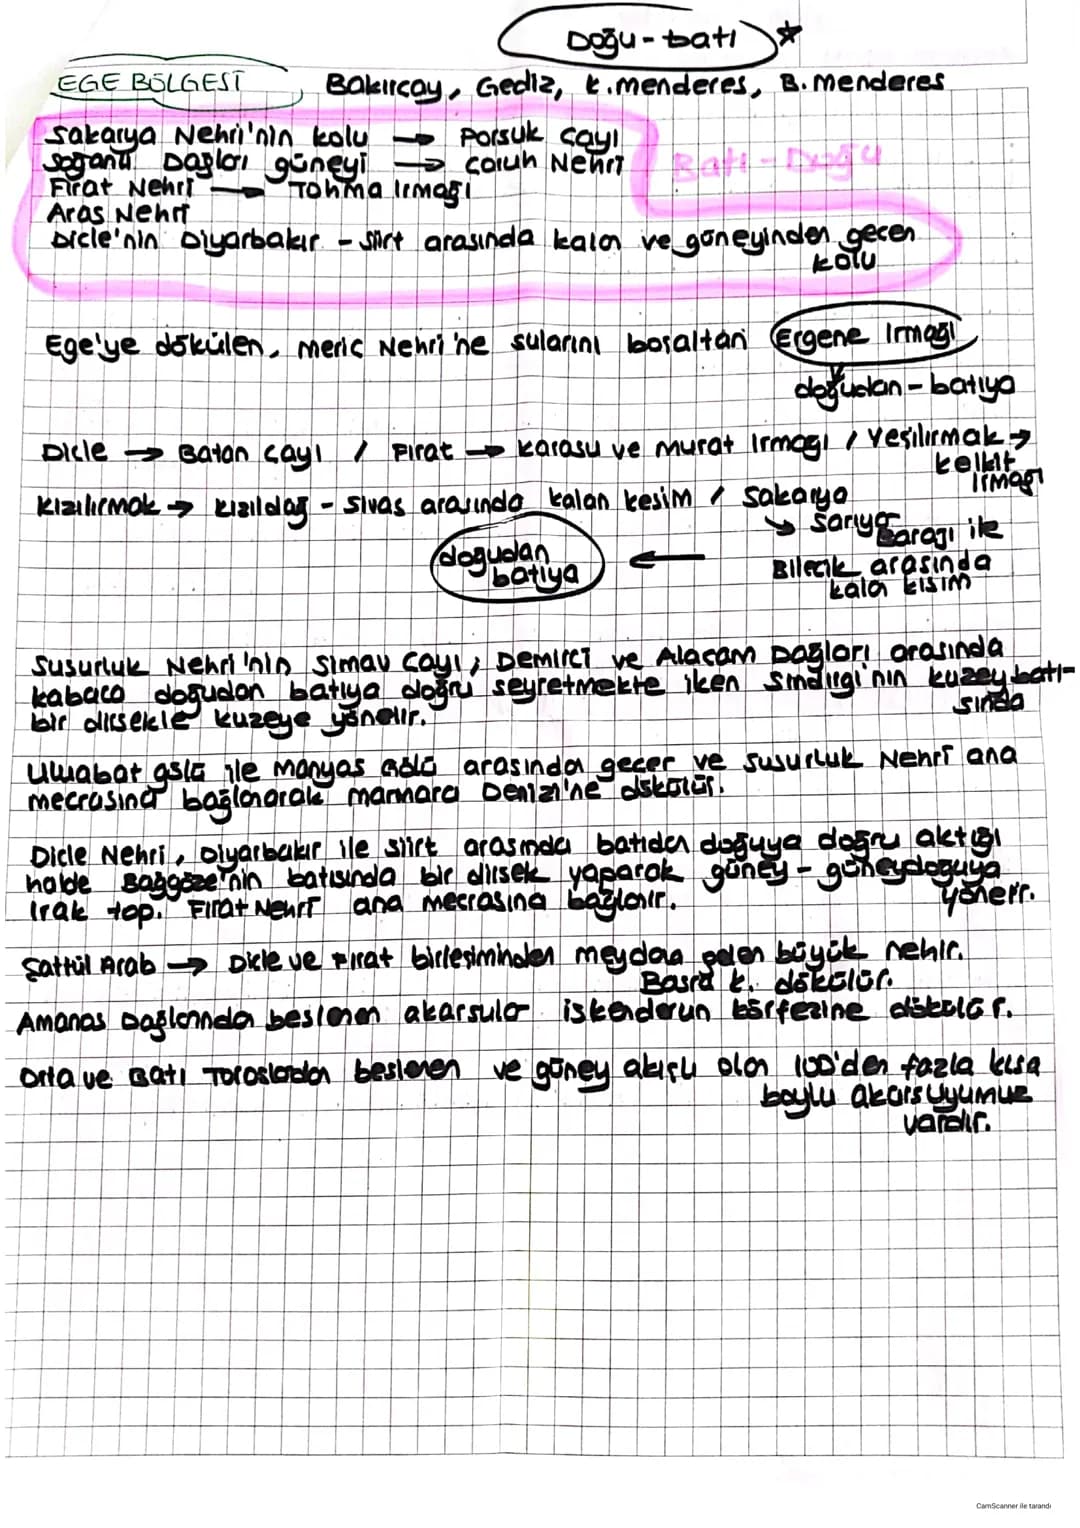 Doğu-batı
EGE BÖLGESİ Bakırçay, Gediz, K.menderes, B.menderes
Sakarya Nehri'nin kolu → Porsuk Çayı
Soğanlı Dağları güneyi → Çoruh Nehri
Batı-Doğu
Fırat Nehri → Tohma Irmağı
Aras Nehri
Dicle'nin Diyarbakır - Siirt arasında kalan ve güneyinden geçen
kolu
Ege'ye dökülen, meriç Nehri'ne sularını boşaltan Ergene Irmağı
doğudan-batıya
Dicle → Batan çayı / Fırat → Karasu ve Murat Irmağı / Yeşilırmak →
kelkit
Irmağı
Kızılırmak → Kızıldağ - Sivas arasında kalan kesim / Sakarya
→ Sarıyar
Barajı ile
doğudan
batıya
←
Bilecik arasında
kala kısım
Susurluk Nehri'nin Simav Çayı, Demirci ve Alaçam Dağları arasında
kabaca doğudan batıya doğru seyretmekte iken Sındırgı'nın kuzeybatı-
sında
bir dirsekle kuzeye yönelir.
Uluabat gölü ile Manyas Gölü arasında geçer ve Susurluk Nehri ana
mecrasına bağlanarak marmara Denizi'ne dökülür.
Dicle Nehri, Diyarbakır ile Siirt arasında batıdan doğuya doğru aktığı
halde Bağgöze'nin batısında bir dirsek yaparak güney-güneydoğuya
yönelir.
Irak top. Fırat Nehri ana mecrasına bağlanır.
Şattül Arab → Dicle ve Fırat birleşiminden meydana gelen büyük nehir.
Basra k. dökülür.
Amanos Dağlarından beslenen akarsular İskenderun körfezine dökülür.
Orta ve Batı Toroslardan beslenen ve güney akışlı olan 100'den fazla kısa
boylu akarsuyumuz
vardır.
CamScanner ile tarandı